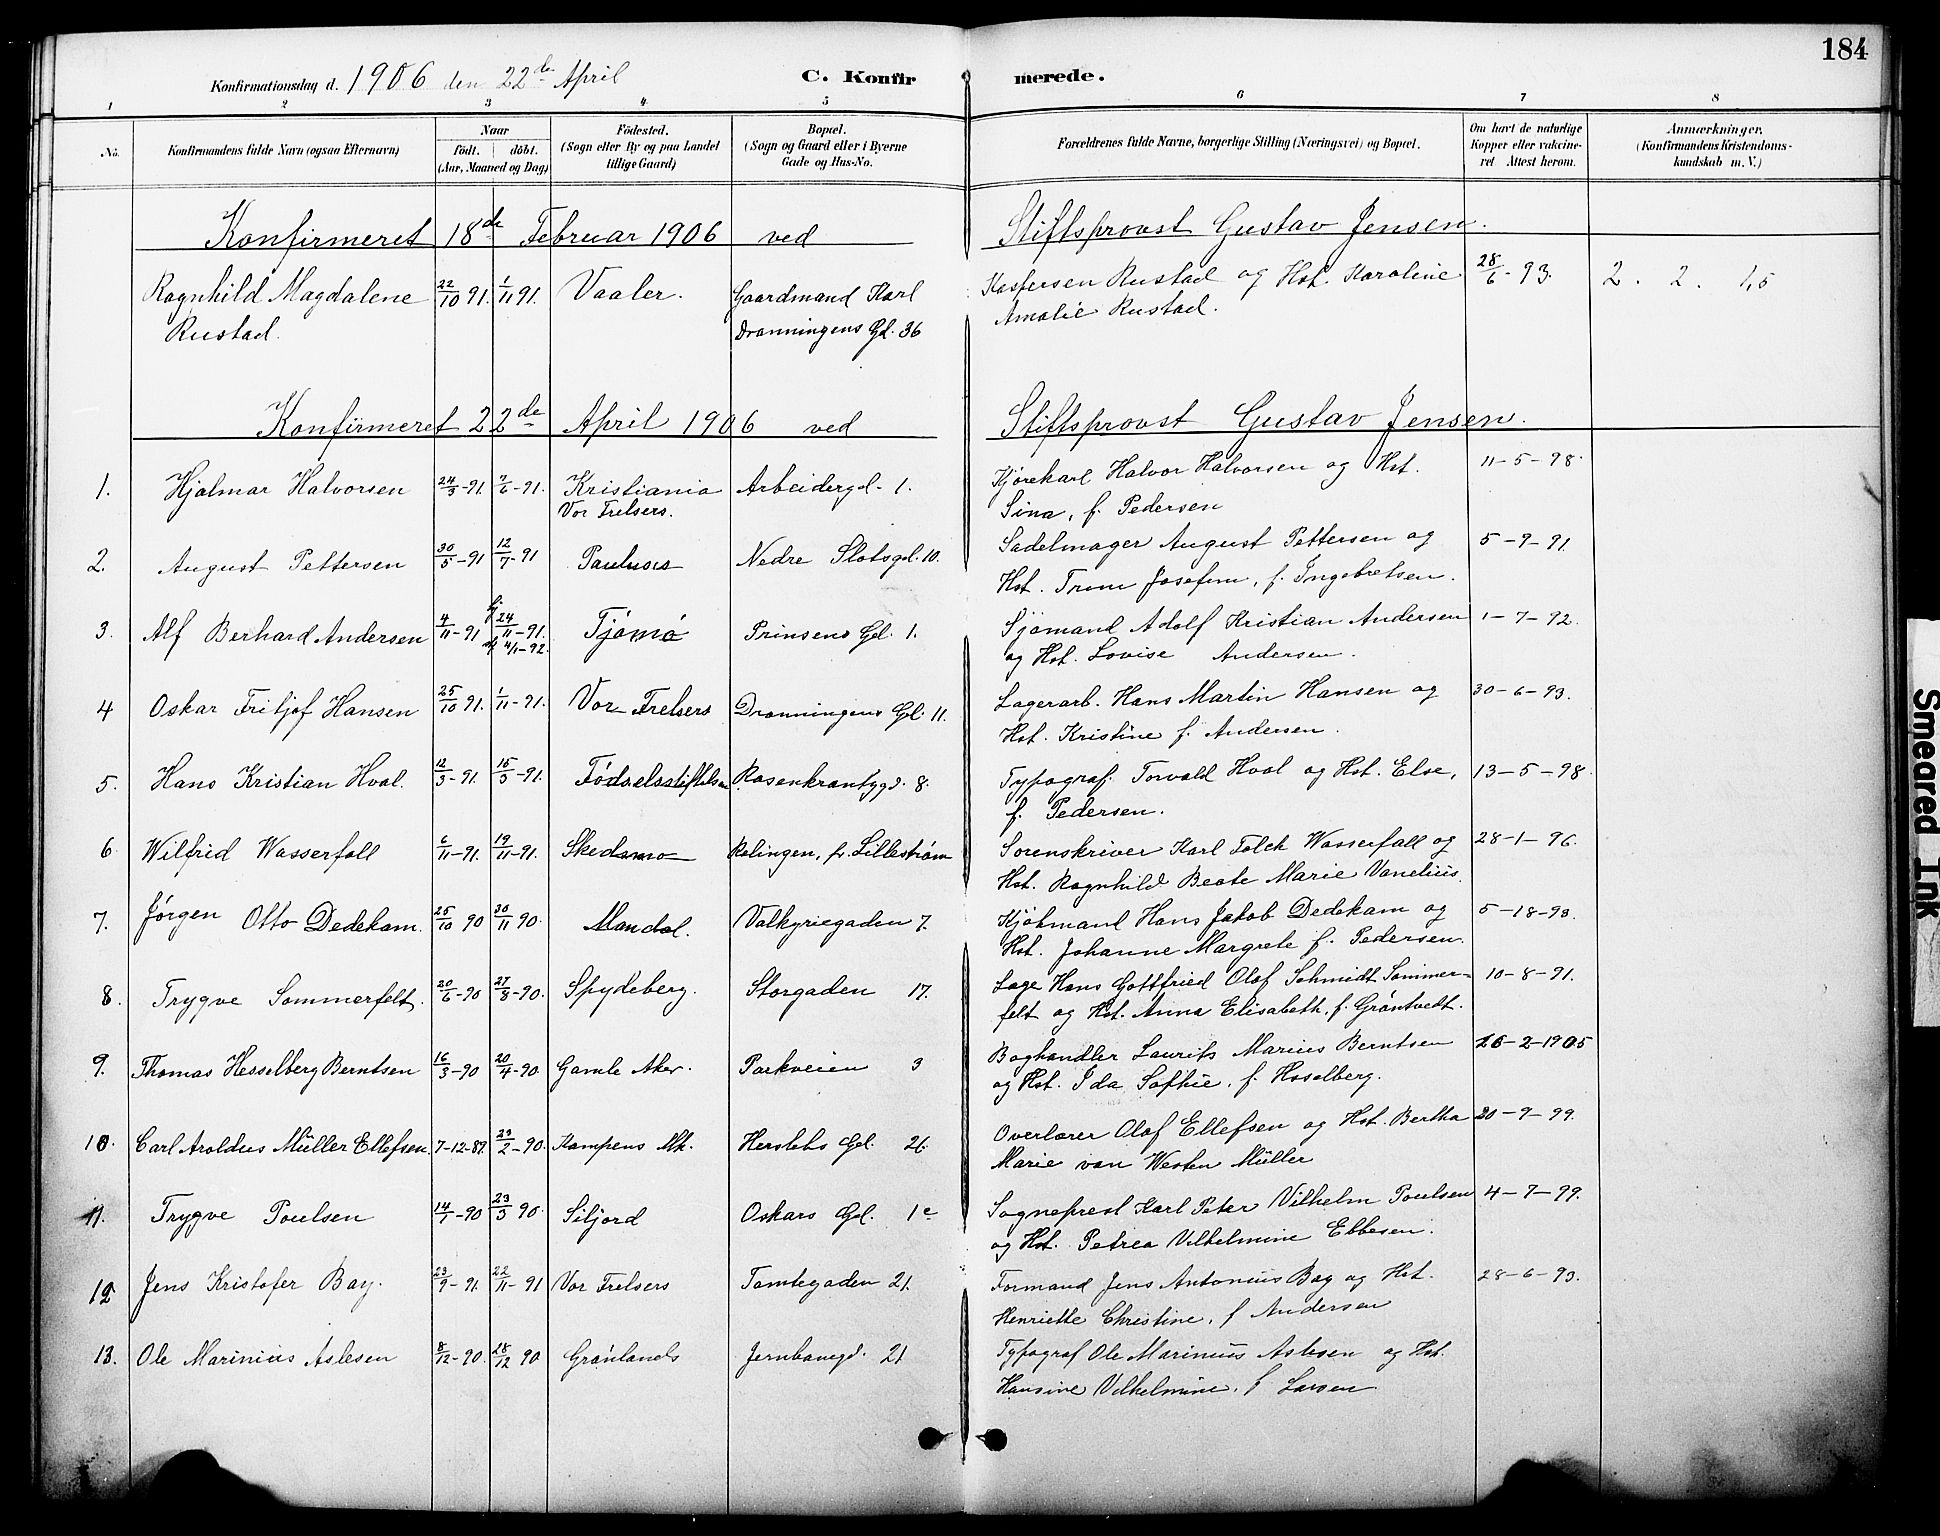 184
Konfirmationsdag d. 1906 den 22de April C. Konfirmerede.
1 2 3 4 5 6 7 8
No. Konfirmandens fulde Navn (ogsaa Efternavn) Naar født. døbt. (Aar, Maaned og Dag) Födested. (Sogn eller By og paa Landet tillige Gaard) Bopæl. (Sogn og Gaard eller i Byerne Gade og Hus-No. Forældrenes fulde Navne, borgerlige Stilling (Næringsvei) og Bopæl. Om havt de naturlige Kopper eller vakcineret Attest herom. Anmærkninger, (Konfirmandens Kristendomskundskab m. V.)
Konfirmeret 18de Februar 1906 ved Stiftsprovst Gustav Jensen.
Ragnhild Magdalene 22/10 91. 1/11 91. Vaaler. Gaardmand Karl Kaspersen Rustad og Hst. Karoline 28/6-93. 2. 2. 1,5
Rustad. Dronningens Gd. 36 Amalie Rustad.
Konfirmeret 22de April 1906 ved Stiftsprovst Gustav Jensen.
1. Hjalmar Halvorsen 24/3-91. 7/6-91. Kristiania Arbeidergd. 1. Kjørekarl Halvor Halvorsen og Hst. 11-5-98.
Vor Frelsers. Sina, f. Pedersen
2. August Pettersen 30/5-91 12/7-91 Paulus Nedre Slotsgd. 10. Sadelmager August Pettersen og 5-9-91.
Hst. Trine Josefine, f. Ingebretsen.
3. Alf Berhard Andersen 4/11-91 hj 24/11-91. Tjømø Prinsens Gd. 1. Sjømand Adolf Kristian Andersen 1-7-92.
4/1-92. og Hst. Lovise Andersen.
4 Oskar Fritjof Hansen 25/10 91. 1/11-91. Vor Frelsers Dronningens Gd. 11. Lagerarb. Hans Martin Hansen og 30-6-93.
Hst. Kristine f. Andersen.
5. Hans Kristian Hval. 12/3-91. 15/3-91. Fødselsstiftelsen Rosenkrantzgd. 8. Typograf. Torvald Hval og Hst. Else, 13-5-98.
f. Pedersen.
6 Wilfrid Wasserfall 6/11-91. 19/11-91. Skedsmo Rælingen, pr. Lillestrøm Sorenskriver Karl Falck Wasserfall og 28-1-96.
Hst. Ragnhild Beate Marie Vanelius.
7. Jørgen Otto Dedekam. 25/10 90 30/11 90. Mandal. Valkyriegaden 7. Kjøbmand Hans Jakob Dedekam og 5-18-93.
Hst. Johanne Margrete f. Pedersen.
8. Trygve Sommerfelt. 20/6-90 27/8-90. Spydeberg. Storgaden 17. Læge Hans Gottfried Olaf Schmidt Sommer- 10-8-91.
felt og Hst. Anna Elisabeth, f. Grøntvedt.
9. Thomas Hesselberg Berntsen 16/3-90 20/4-90. Gamle Aker. Parkveien 3 Boghandler Laurits Marius Berntsen 26-2-1905
og Hst. Ida Sofhie, f. Hsselberg.
10. Carl Aroldus Müller Ellefsen. 7-12-89. 23/2-90. Kampens Mk. Herslebs Gd. 26. Overlærer Olaf Ellefsen og Hst. Bertha 20-9-99.
Marie van Westen Müller
11. Trygve Poulsen 14/1-90 23/3 90. Siljord Oskars Gd. 1c Sogneprest Karl Peter Vilhelm Poulsen 4-7-99.
og Hst. Petrea Vilhelmine Ebbesen.
12 Jens Kristofer Bay. 23/9-91. 22/11-91 Vor Frelsers Tomtegaden 21. Formand Jens Antonius Bay og Hst. 28-6-93.
Henriette Christine, f Andersen
13. Ole Marinius Aslesen 8/12-90. 28/12 90 Grønlands Jernbanegd. 21 Typograf Ole Marinius Aslesen og Hst.
Hansine Vilhelmine, f Larsen
Smeared Ink